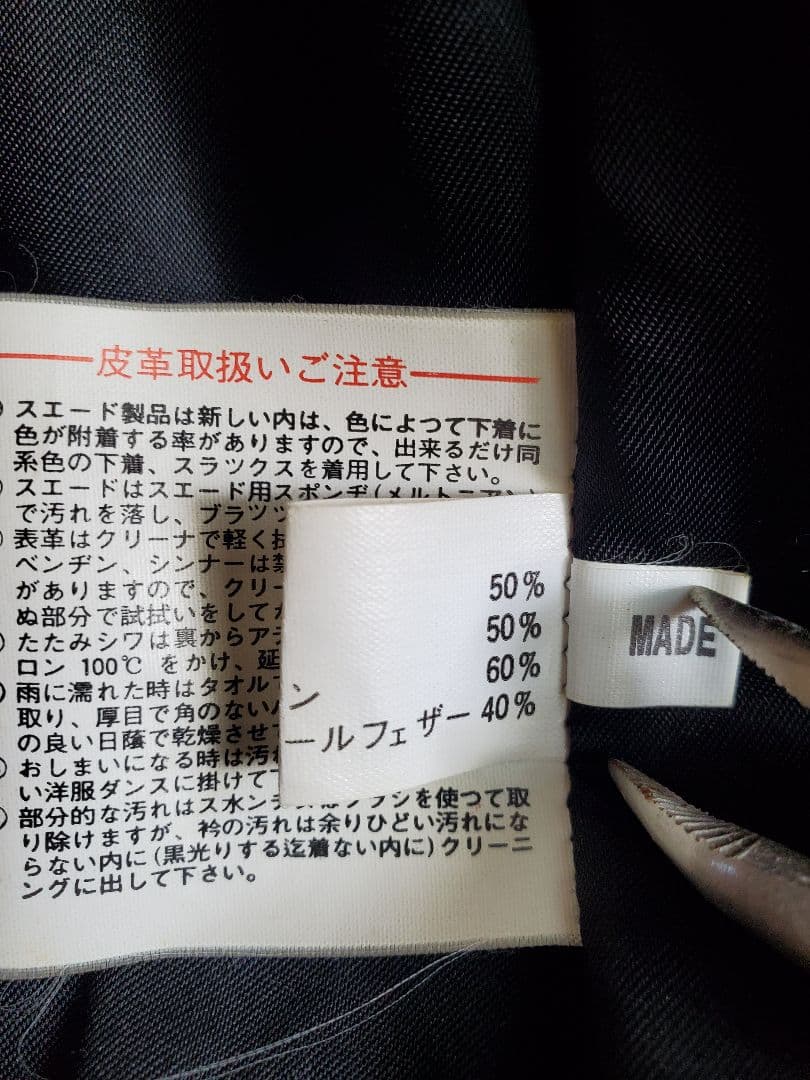 皮革取扱いご注意
スエード製品は新しい内は、色によつて下着に
色が附着する率がありますので、出来るだけ同
系色の下着、スラックスを着用して下さい。
スエードはスエード用スポンヂ(メルトニアン)
で汚れを落し、ブラツ
表革はクリーナで軽く拭
ベンヂン、シンナーは禁
がありますので、クリー
ぬ部分で試拭いをして
たたみシワは裏からア
ロン 100℃ をかけ、延
雨に濡れた時はタオルで
取り、厚目で角のない
の良い日蔭で乾燥させて
おしまいになる時は汚れ
い洋服ダンスに掛けて下
部分的な汚れはスポンヂ又はブラシを使つて取
り除けますが、衿の汚れは余りひどい汚れにな
らない内に(黒光りする迄着ない内に)クリーニ
ングに出して下さい。
50%
50%
60%
ン
ールフェザー 40%
MADE